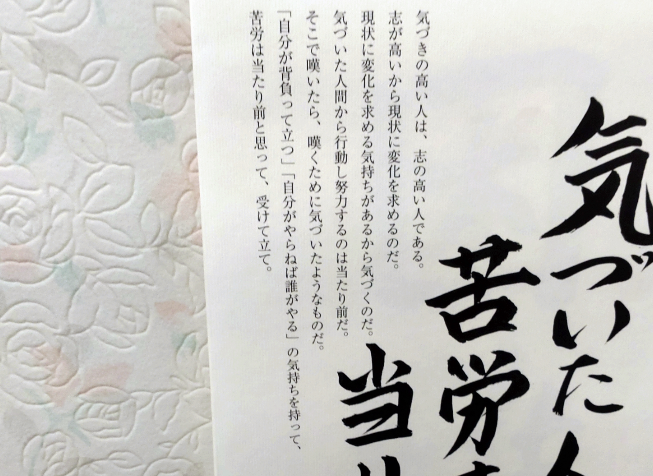 気づいた
苦労
当
気づきの高い人は、志の高い人である。
志が高いから現状に変化を求めるのだ。
現状に変化を求める気持ちがあるから気づくのだ。
気づいた人間から行動し努力するのは当たり前だ。
そこで嘆いたら、嘆くために気づいたようなものだ。
「自分が背負って立つ」「自分がやらねば誰がやる」の気持ちを持って、
苦労は当たり前と思って、受けて立て。